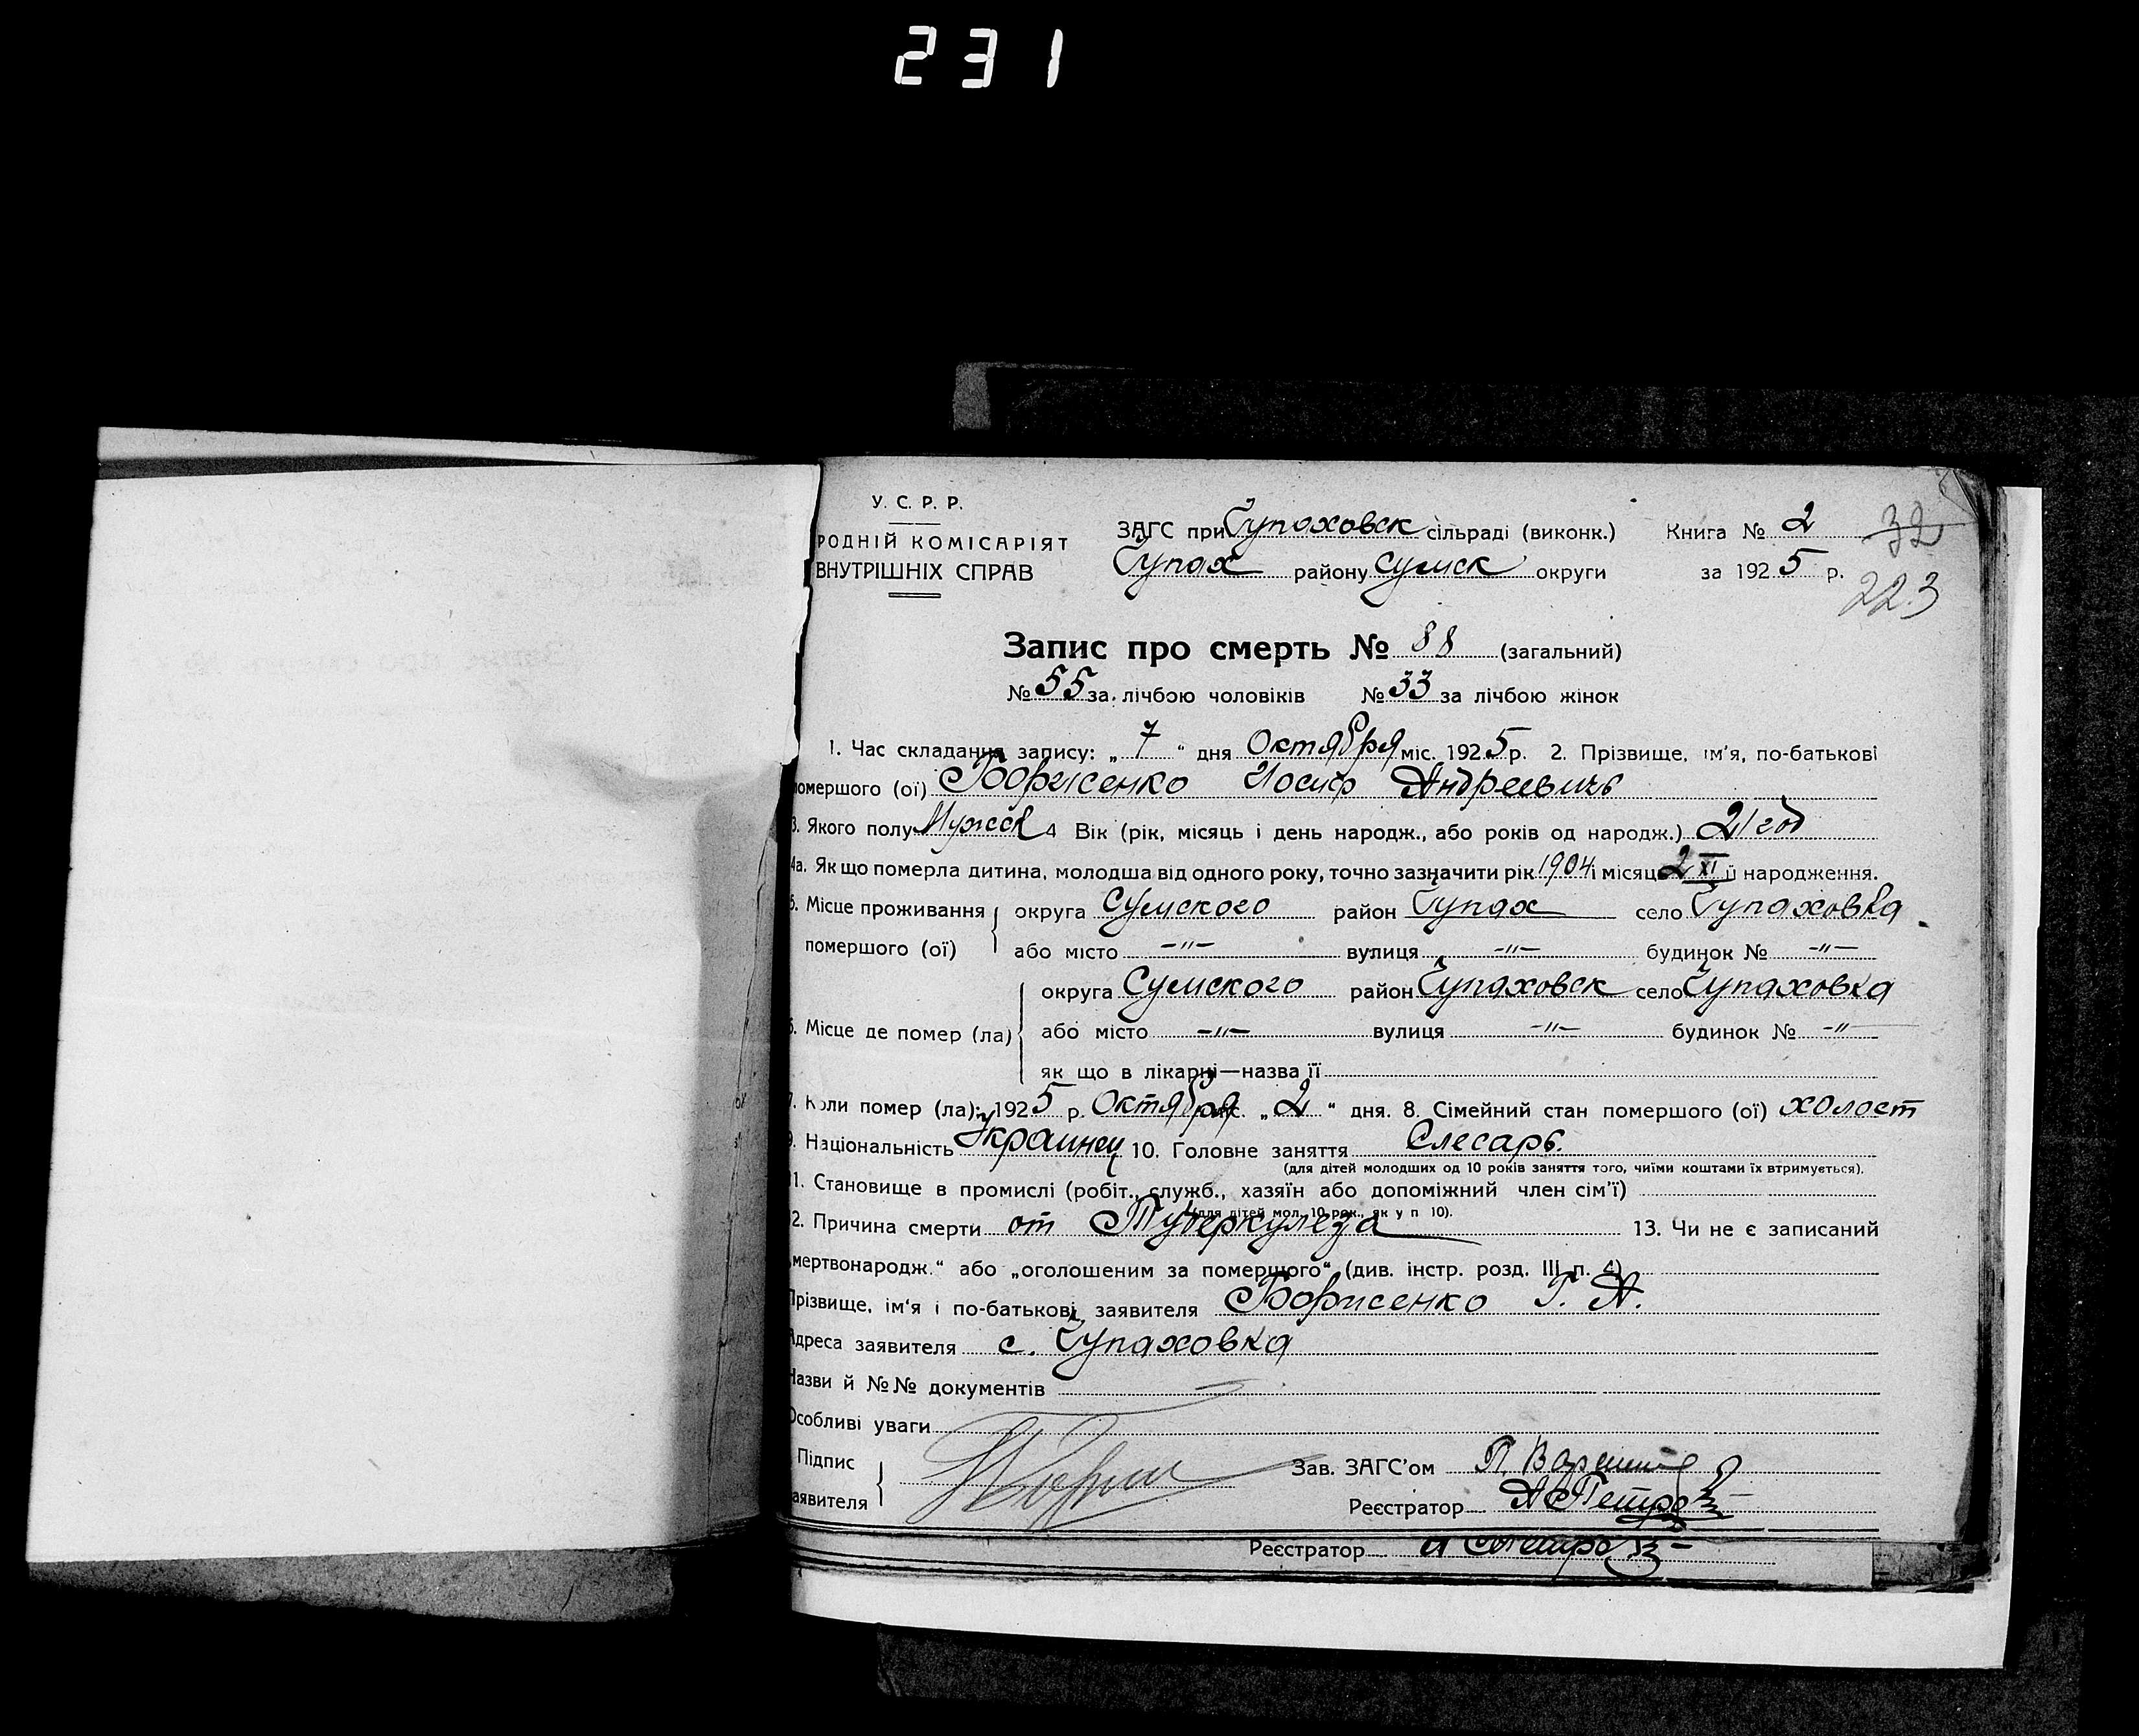 231
У. С. Р. Р.
РОДНІЙ КОМІСАРІЯТ
ВНУТРІШНІХ СПРАВ
ЗАГС при Чупаховск сільраді (виконк.)
Чупах району Сумск округи
Книга № 2
за 1925 р.
32
223
Запис про смерть № 88 (загальний)
№ 55 за лічбою чоловіків № 33 за лічбою жінок
1. Час складання запису: „ 7 “ дня Октября міс. 1925 р. 2. Прізвище, ім'я, по-батькові
помершого (ої) Борисенко Иосиф Андреевичъ
3. Якого полу Мужск 4 Вік (рік, місяць і день народж., або років од народж.) 21 год
4а. Як що померла дитина, молодша від одного року, точно зазначити рік 1904 і місяць 2 XI її народження.
5. Місце проживання округа Сумского район Чупах село Чупаховка
помершого (ої) або місто -"- вулиця -"- будинок № -"-
округа Сумского район Чупаховск село Чупаховка
6. Місце де помер (ла) або місто -"- вулиця -"- будинок № -"-
як що в лікарні—назва її
7. Коли помер (ла): 1925 р. Октября міс. „ 2 “ дня. 8. Сімейний стан помершого (ої) холост
9. Національність Украинец 10. Головне заняття Слесарь.
(для дітей молодших од 10 років заняття того, чиїми коштами їх втримується).
11. Становище в промислі (робіт., служб., хазяїн або допоміжний член сім'ї)
(для дітей мол. 10 рок., як у п 10).
12. Причина смерти от Туберкулеза 13. Чи не є записаний
„мертвонародж.“ або „оголошеним за помершого“ (див. інстр. розд. III п. 4)
Прізвище, ім'я і по-батькові заявителя Борисенко Г. А.
Адреса заявителя с. Чупаховка
Назви й №№ документів
Особливі уваги
Підпис
заявителя
Зав. ЗАГС'ом
Реєстратор
Реєстратор